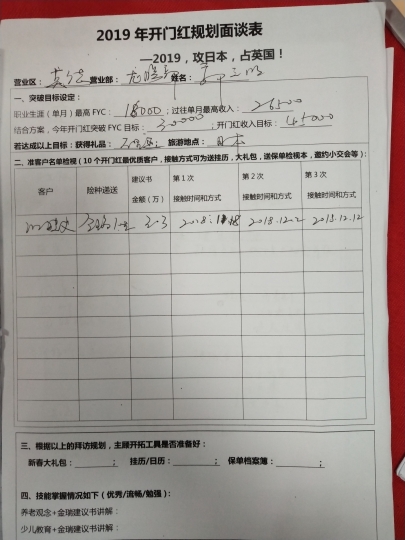 2019年开门红规划面谈表
—2019，攻日本，占英国！
营业区： 营业部： 姓名：
一、突破目标设定：
职业生涯（单月）最高 FYC： 18000；过往单月最高收入： 26500
结合方案，今年开门红突破 FYC 目标： 30000 ；开门红收入目标： 45000
若达成以上目标：获得礼品： ；旅游地点： 日本
二、准客户名单检视（10 个开门红最优质客户，接触方式可为送挂历，大礼包，送保单检视本，邀约小交会等）：
客户 险种递送 建议书金额（万） 第 1 次接触时间和方式 第 2 次接触时间和方式 第 3 次接触时间和方式
2018.11.18 2018.12.2 2018.12.12
三、根据以上的拜访规划，主顾开拓工具是否准备好：
新春大礼包： ； 挂历/日历： ； 保单档案簿： ；
四、技能掌握情况如下（优秀/流畅/勉强）：
养老观念+金瑞建议书讲解：
少儿教育+金瑞建议书讲解：